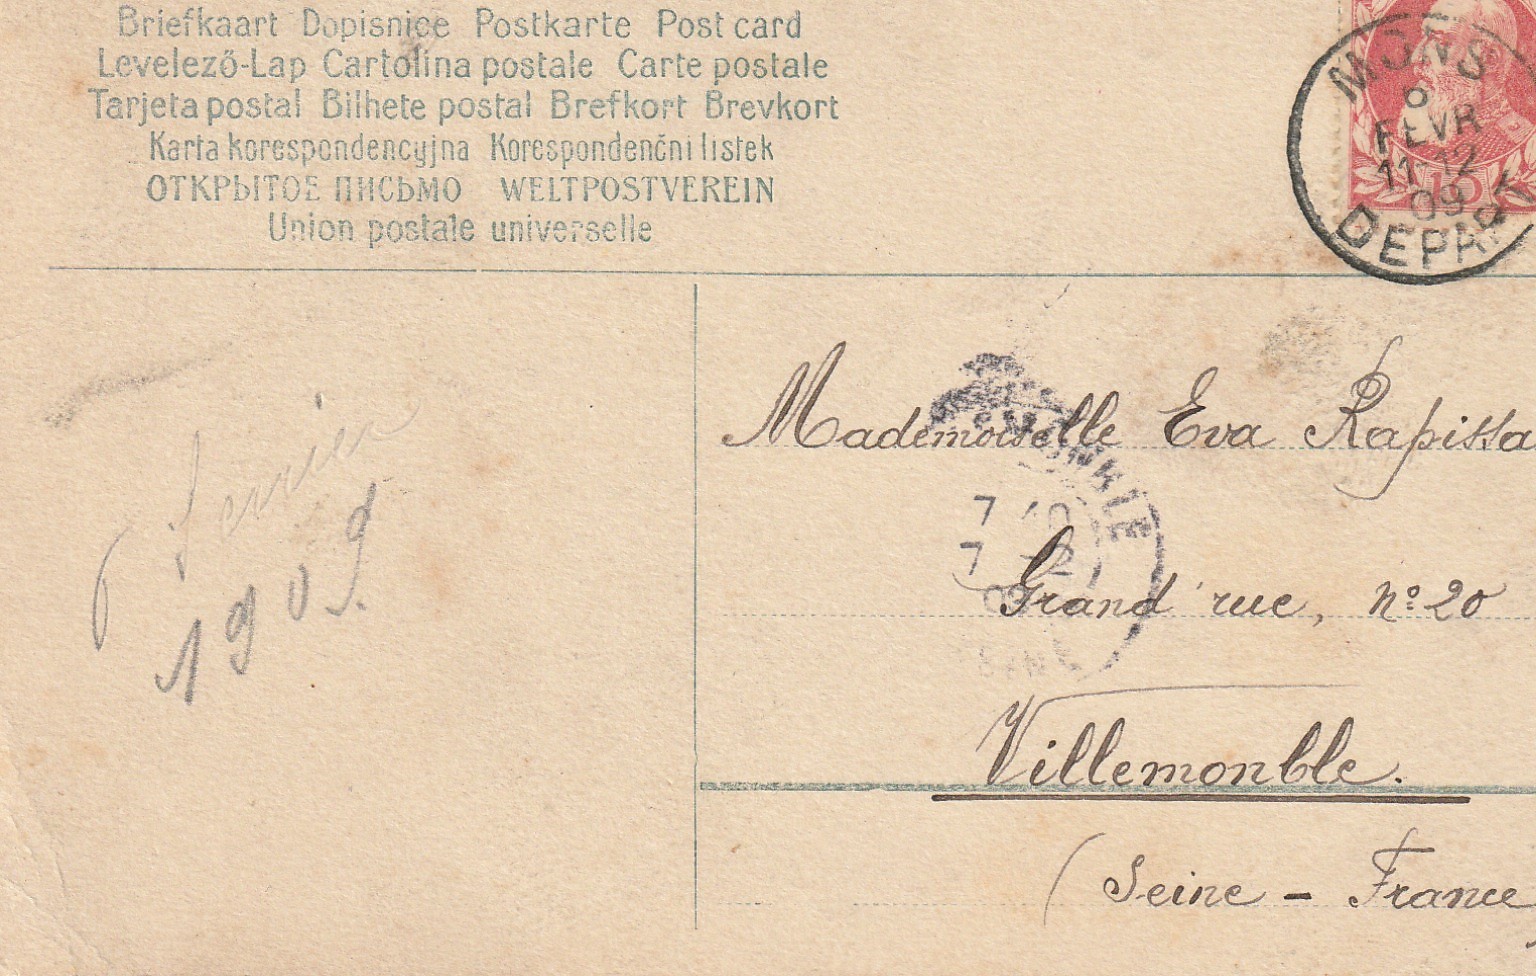 Briefkaart Dopisnice Postkarte Post card
Levelező-Lap Cartolina postale Carte postale
Tarjeta postal Bilhete postal Brefkort Brevkort
Karta korespondencyjna Korespondenčni listek
ОТКРЫТОЕ ПИСЬМО WELTPOSTVEREIN
Union postale universelle
MONS
6
FEVR
11-12
09
DEPART
10
6 fevrier
1909.
Mademoiselle Eva Rapissa
7
7 -2
09
Grand'rue, nº 20
Villemonble.
(Seine - France